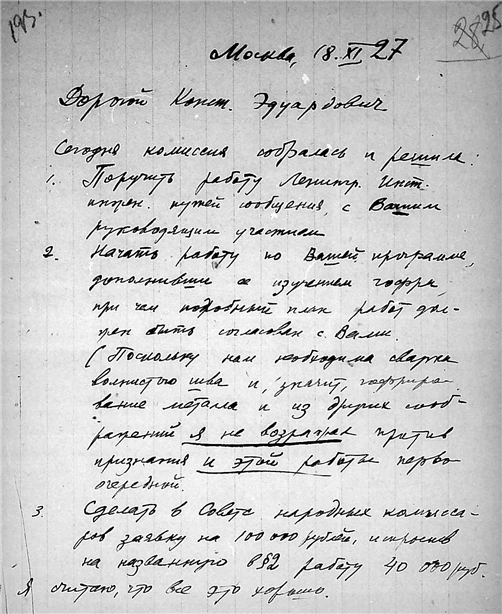 193.
28 25
Москва, 18. XI 27
Дорогой Конст. Эдуардович
Сегодня комиссия собралась и решила:
1. Поручить работу Ленингр. Инст.
инжен. путей сообщения, с Вашим
руководящим участием
2. Начать работу по Вашей программе,
дополнивши ее изучением гофра,
при чем подробный план работ дол-
жен быть согласован с Вами.
(Поскольку нам необходима сварка
волнистого шва и, значит, гофриро-
вание метала и из других сооб-
ражений я не возражал против
признания и этой работы перво
очередной.
3. Сделать в Совете народных комисса-
ров заявку на 100 000 рублей, испросив
на названную в § 2 работу 40 000 руб.
Я считаю, что все это хорошо.